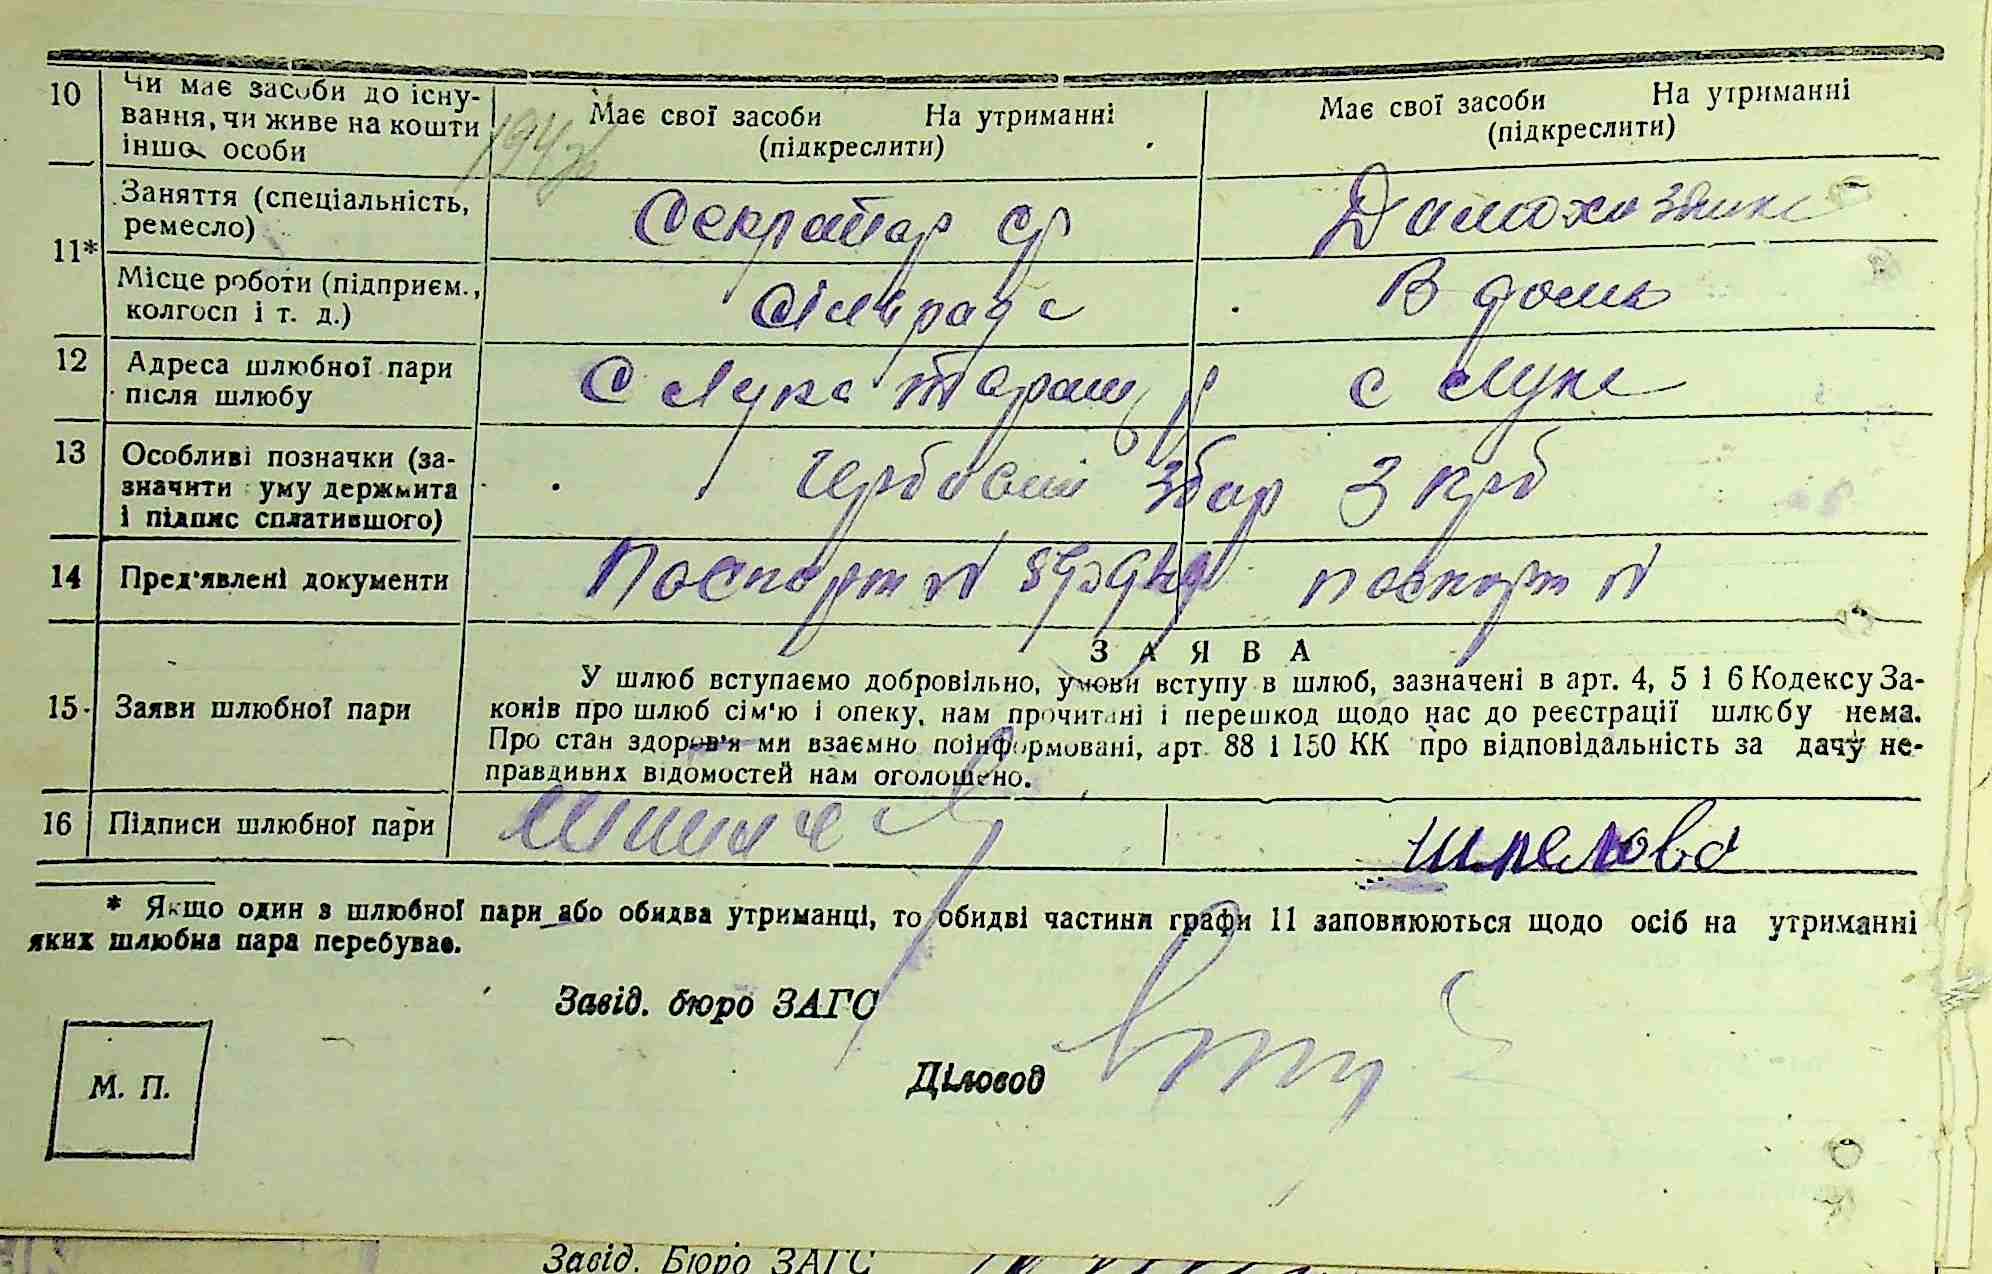 10 Чи має засоби до існу-
вання, чи живе на кошти
іншої особи
Має свої засоби На утриманні
(підкреслити)
Має свої засоби На утриманні
(підкреслити)
11*
Заняття (спеціальність,
ремесло)
Секратар ср
Домохозяика
Місце роботи (підприєм.,
колгосп і т. д.)
Сільрада
В дома
12 Адреса шлюбної пари
після шлюбу
С Лука
с Лука
13 Особливі позначки (за-
значити суму держмита
і підпис сплатившого)
гербовий збор 3 крб
14 Пред'явлені документи
Поспорт N
поспорт N
15 Заяви шлюбної пари
ЗАЯВА
У шлюб вступаємо добровільно, умови вступу в шлюб, зазначені в арт. 4, 5 і 6 Кодексу За-
конів про шлюб сім'ю і опеку, нам прочитані і перешкод щодо нас до реєстрації шлюбу нема.
Про стан здоров'я ми взаємно поінформовані, арт. 88 і 150 КК про відповідальність за дачу не-
правдивих відомостей нам оголошено.
16 Підписи шлюбної пари
* Якщо один з шлюбної пари або обидва утриманці, то обидві частини графи 11 заповнюються щодо осіб на утриманні
яких шлюбна пара перебуває.
Завід. бюро ЗАГС
Діловод
М. П.
Завід. Бюро ЗАГС